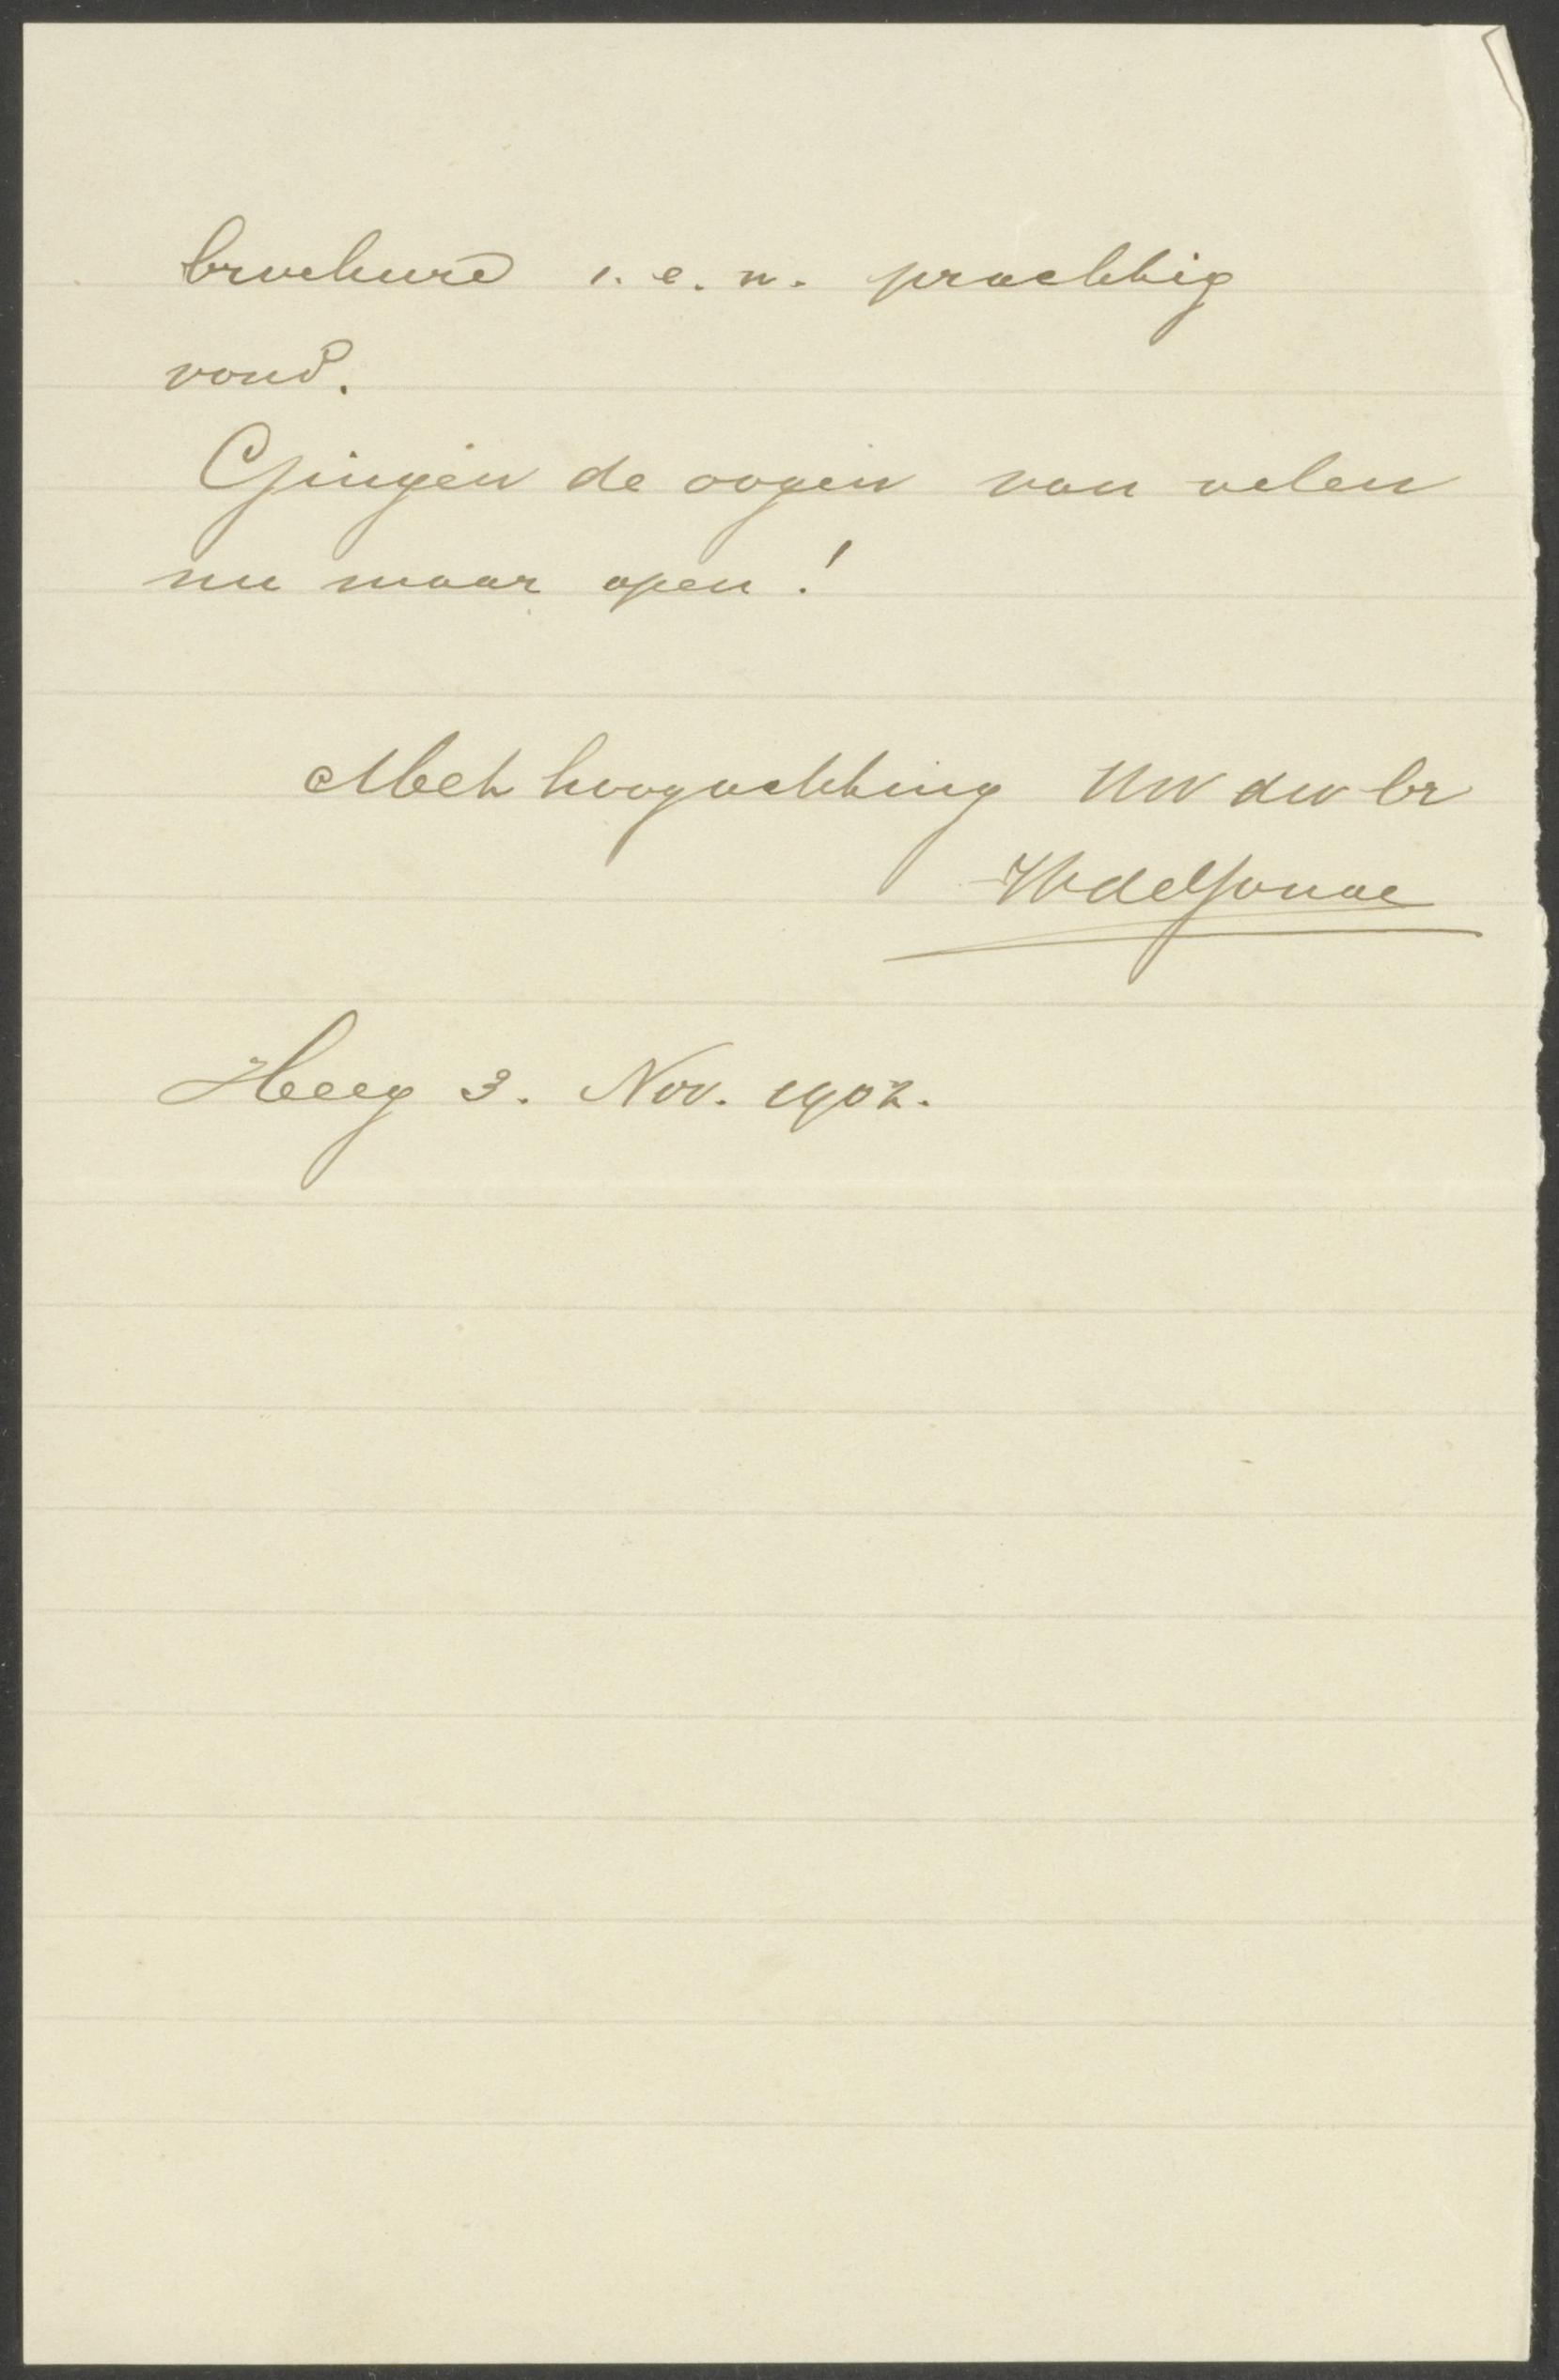 brochure i. e. n. prachtig
vond.
Gingen de oogen van velen
nu maar open!
Met hoogachting Uw dw br
WdeJonge
Heeg 3. Nov. 1902.